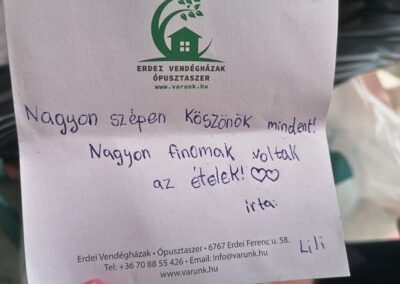 ERDEI VENDÉGHÁZAK
ÓPUSZTASZER
www.varunk.hu
Nagyon szépen köszönök mindent!
Nagyon finomak voltak
az ételek! ♡♡
irta:
Lili
Erdei Vendégházak • Ópusztaszer • 6767 Erdei Ferenc u. 58.
Tel: +36 70 88 55 426 • Email: info@varunk.hu
www.varunk.hu